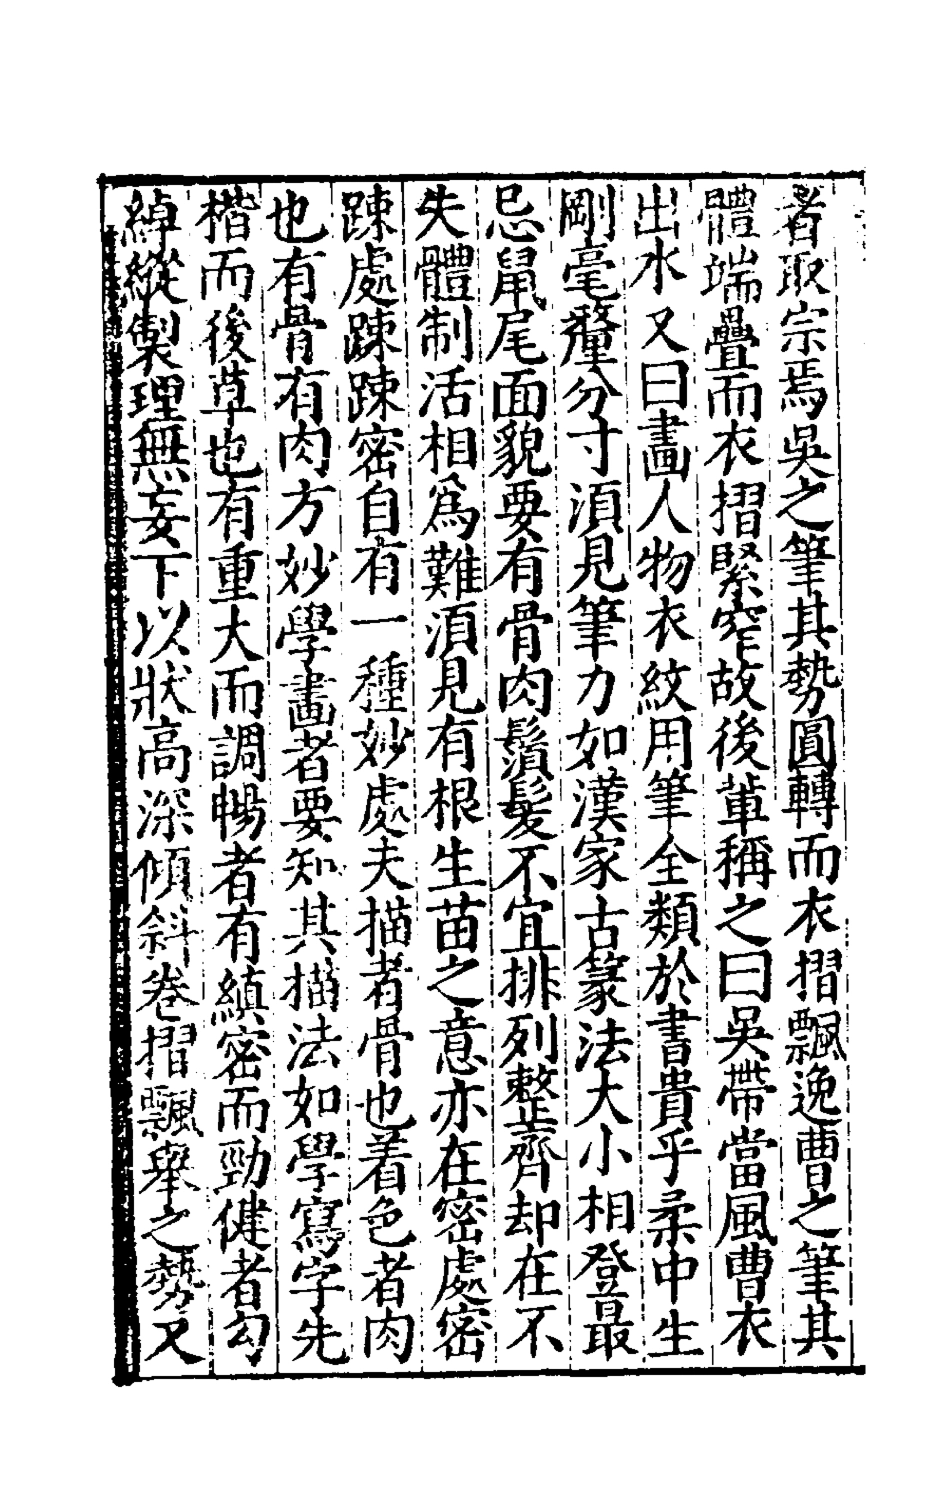 者取宗焉吳之筆其勢圓轉而衣摺飄逸曹之筆其
體端疊而衣摺緊窄故後輩稱之曰吳帶當風曹衣
出水又曰畫人物衣紋用筆全類於書貴乎柔中生
剛毫釐分寸須見筆力如漢家古篆法大小相登最
忌鼠尾面貌要有骨肉鬚髮不宜排列整齊却在不
失體制活相為難須見有根生苗之意亦在密處密
踈處踈踈密自有一種妙處夫描者骨也着色者肉
也有骨有肉方妙學畫者要知其描法如學寫字先
楷而後草也有重大而調暢者有縝密而勁健者勾
綽縱掣理無妄下以狀高深傾斜卷摺飄舉之勢又